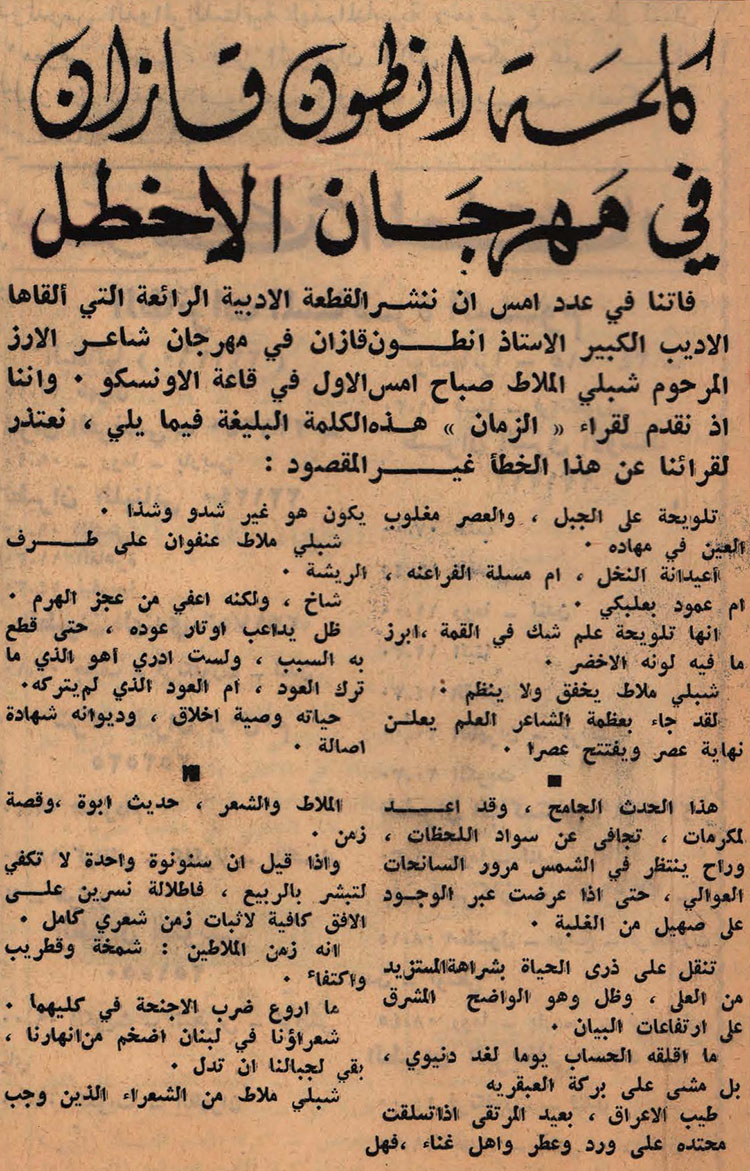 كلمة انطون قازان
في مهرجان الاخطل
فاتنا في عدد امس ان ننشر القطعة الادبية الرائعة التي ألقاها
الاديب الكبير الاستاذ انطون قازان في مهرجان شاعر الارز
المرحوم شبلي الملاط صباح امس الاول في قاعة الاونسكو . واننا
اذ نقدم لقراء « الزمان » هذه الكلمة البليغة فيما يلي ، نعتذر
لقرائنا عن هذا الخطأ غير المقصود :
تلويحة على الجبل ، والعصر مغلوب
العين في مهاده .
أعيدانة النخل ، ام مسلة الفراعنه ،
ام عمود بعلبكي .
انها تلويحة علم شبك في القمة ، ابرز
ما فيه لونه الاخضر .
شبلي ملاط يخفق ولا ينظم .
لقد جاء بعظمة الشاعر العلم يعلن
نهاية عصر ويفتتح عصرا .
هذا الحدث الجامح ، وقد اعد
لمكرمات ، تجافى عن سواد اللحظات ،
وراح ينتظر في الشمس مرور السانحات
العوالي ، حتى اذا عرضت عبر الوجود
على صهيل من الغلبة .
تنقل على ذرى الحياة بشراهة المستزيد
من العلى ، وظل وهو الواضح المشرق
على ارتفاعات البيان .
ما اقلقه الحساب يوما لغد دنيوي ،
بل مشى على بركة العبقريه
طيب الاعراق ، بعيد المرتقى اذا تسلقت
محتده على ورد وعطر واهل غناء ، فهل
يكون هو غير شدو وشذا .
شبلي ملاط عنفوان على طرف
الريشة .
شاخ ، ولكنه اعفي من عجز الهرم .
ظل يداعب اوتار عوده ، حتى قطع
به السبب ، ولست ادري أهو الذي ما
ترك العود ، ام العود الذي لم يتركه .
حياته وصية اخلاق ، وديوانه شهادة
اصالة .
الملاط والشعر ، حديث ابوة ، وقصة
زمن .
واذا قيل ان سنونوة واحدة لا تكفي
لتبشر بالربيع ، فاطلالة نسرين على
الافق كافية لاثبات زمن شعري كامل .
انه زمن الملاطين : شمخة وقطريب
واكتفاء .
ما اروع ضرب الاجنحة في كليهما .
شعراؤنا في لبنان اضخم من انهارنا ،
بقي لجبالنا ان تدل .
شبلي ملاط من الشعراء الذين وجب